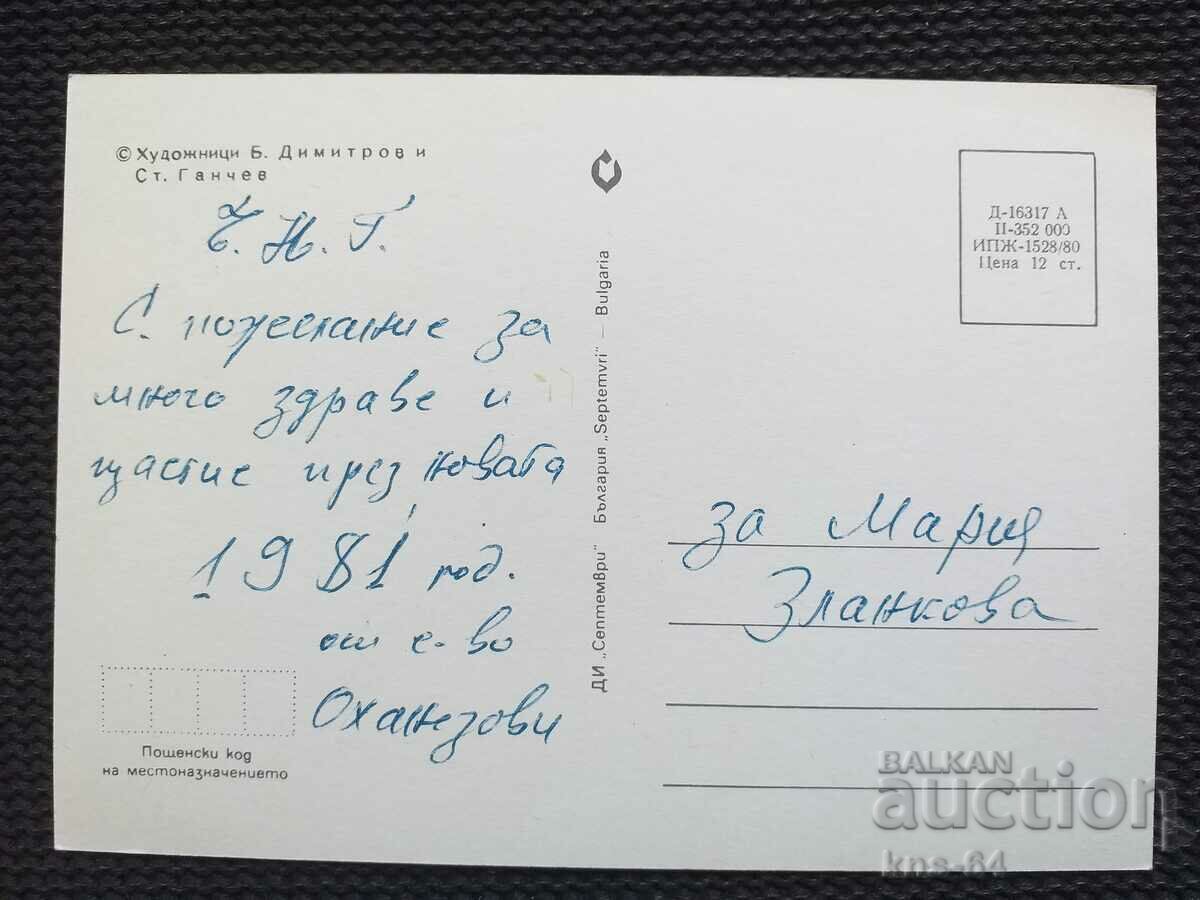 © Художници Б. Димитров и
Ст. Ганчев
Ч. Н. Г.
С пожелание за
много здраве и
щастие през новата
1981 год.
от с-во
Оханезови
Пощенски код
на местоназначението
ДИ „Септември" България „Septemvri" — Bulgaria
Д-16317 А
II-352 000
ИПЖ-1528/80
Цена 12 ст.
за Мария
Зланкова
BALKAN
auction
kns-64